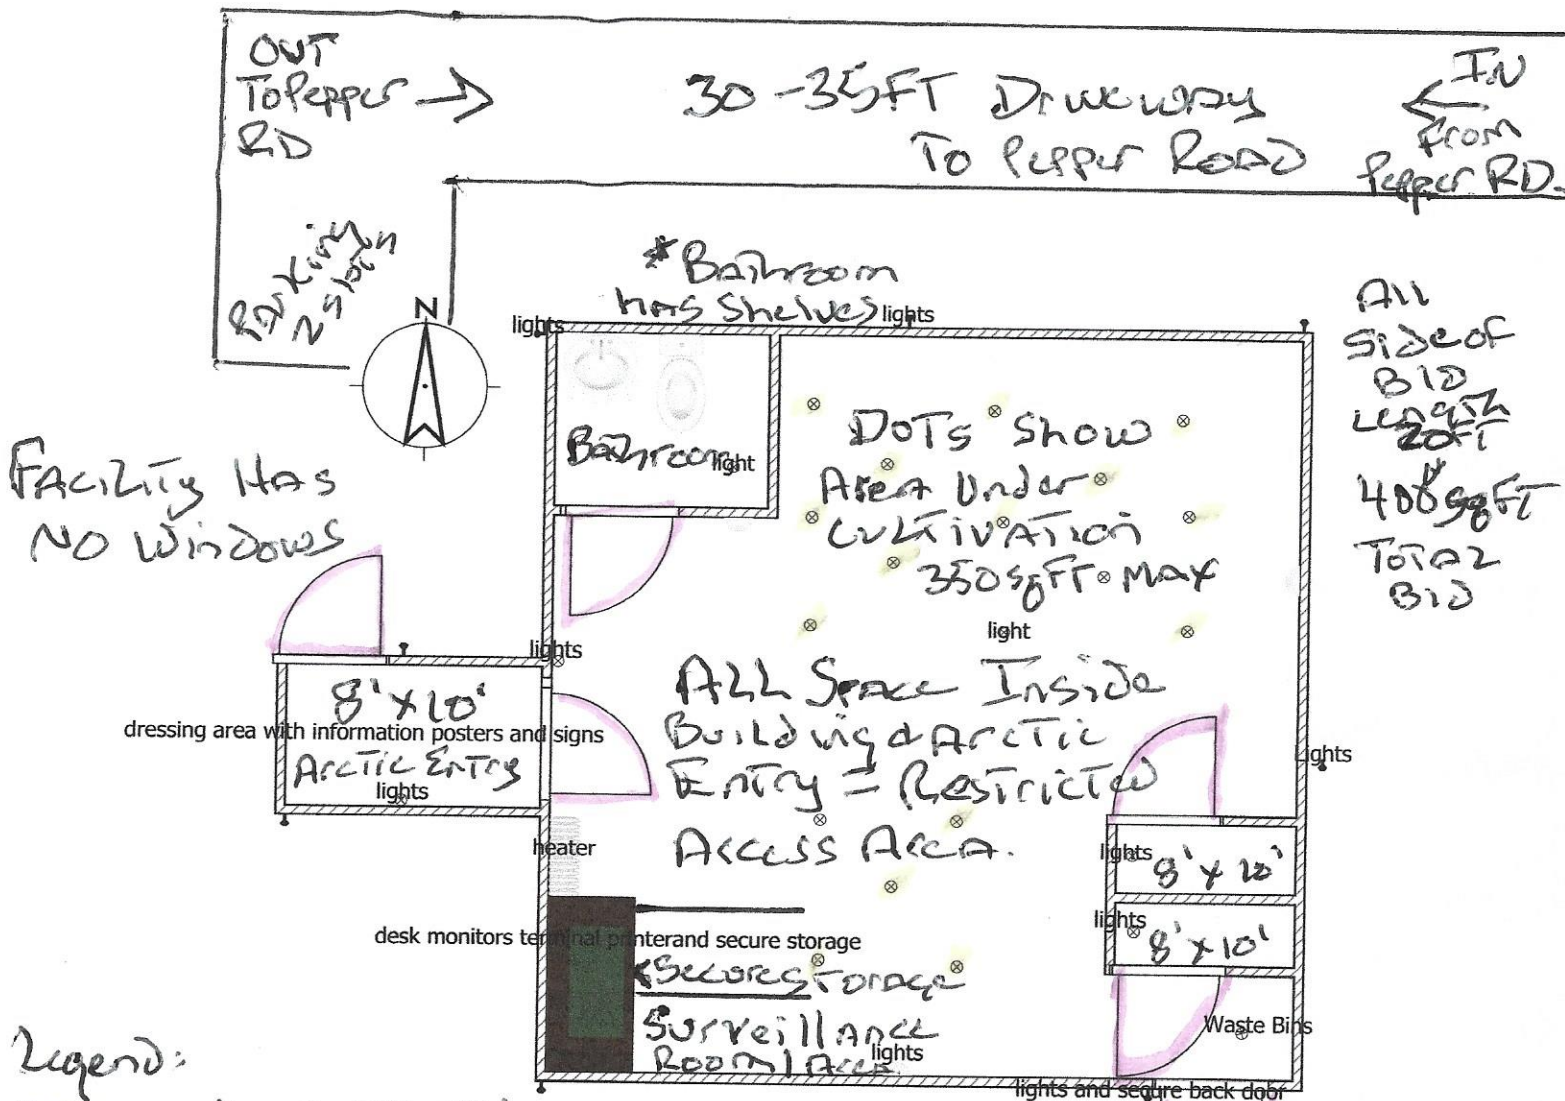 OUT
To Pepper →
RD
30-35FT Driveway
To Pepper Road
← IN
From
Pepper RD.
Parking
2 slots
N
*Bathroom
has Shelves
lights
lights
All
side of
BLD
Length
20FT
400 sqFT
Total
BLD
Facility Has
No Windows
Bathroom
light
Dots Show
Area Under
Cultivation
350 sqFT MAX
light
lights
8' x 10'
dressing area with information posters and signs
Arctic Entry
lights
All Space Inside
Building & Arctic
Entry = Restricted
Access Area.
Lights
heater
lights
8' x 10'
lights
8' x 10'
desk monitors terminal printerand secure storage
Secure Storage
Surveillance
Room/Area
lights
Waste Bins
lights and secure back door
Legend: